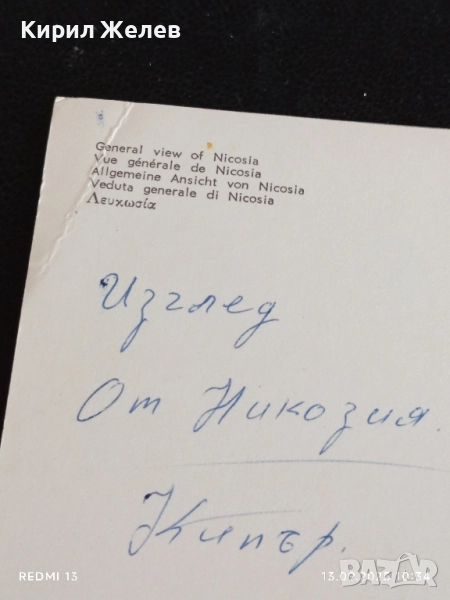 Кирил Желев
General view of Nicosia
Vue générale de Nicosia
Allgemeine Ansicht von Nicosia
Veduta generale di Nicosia
Λευκωσία
Изглед
От Никозия.
Кипър.
REDMI 13
BAZAR